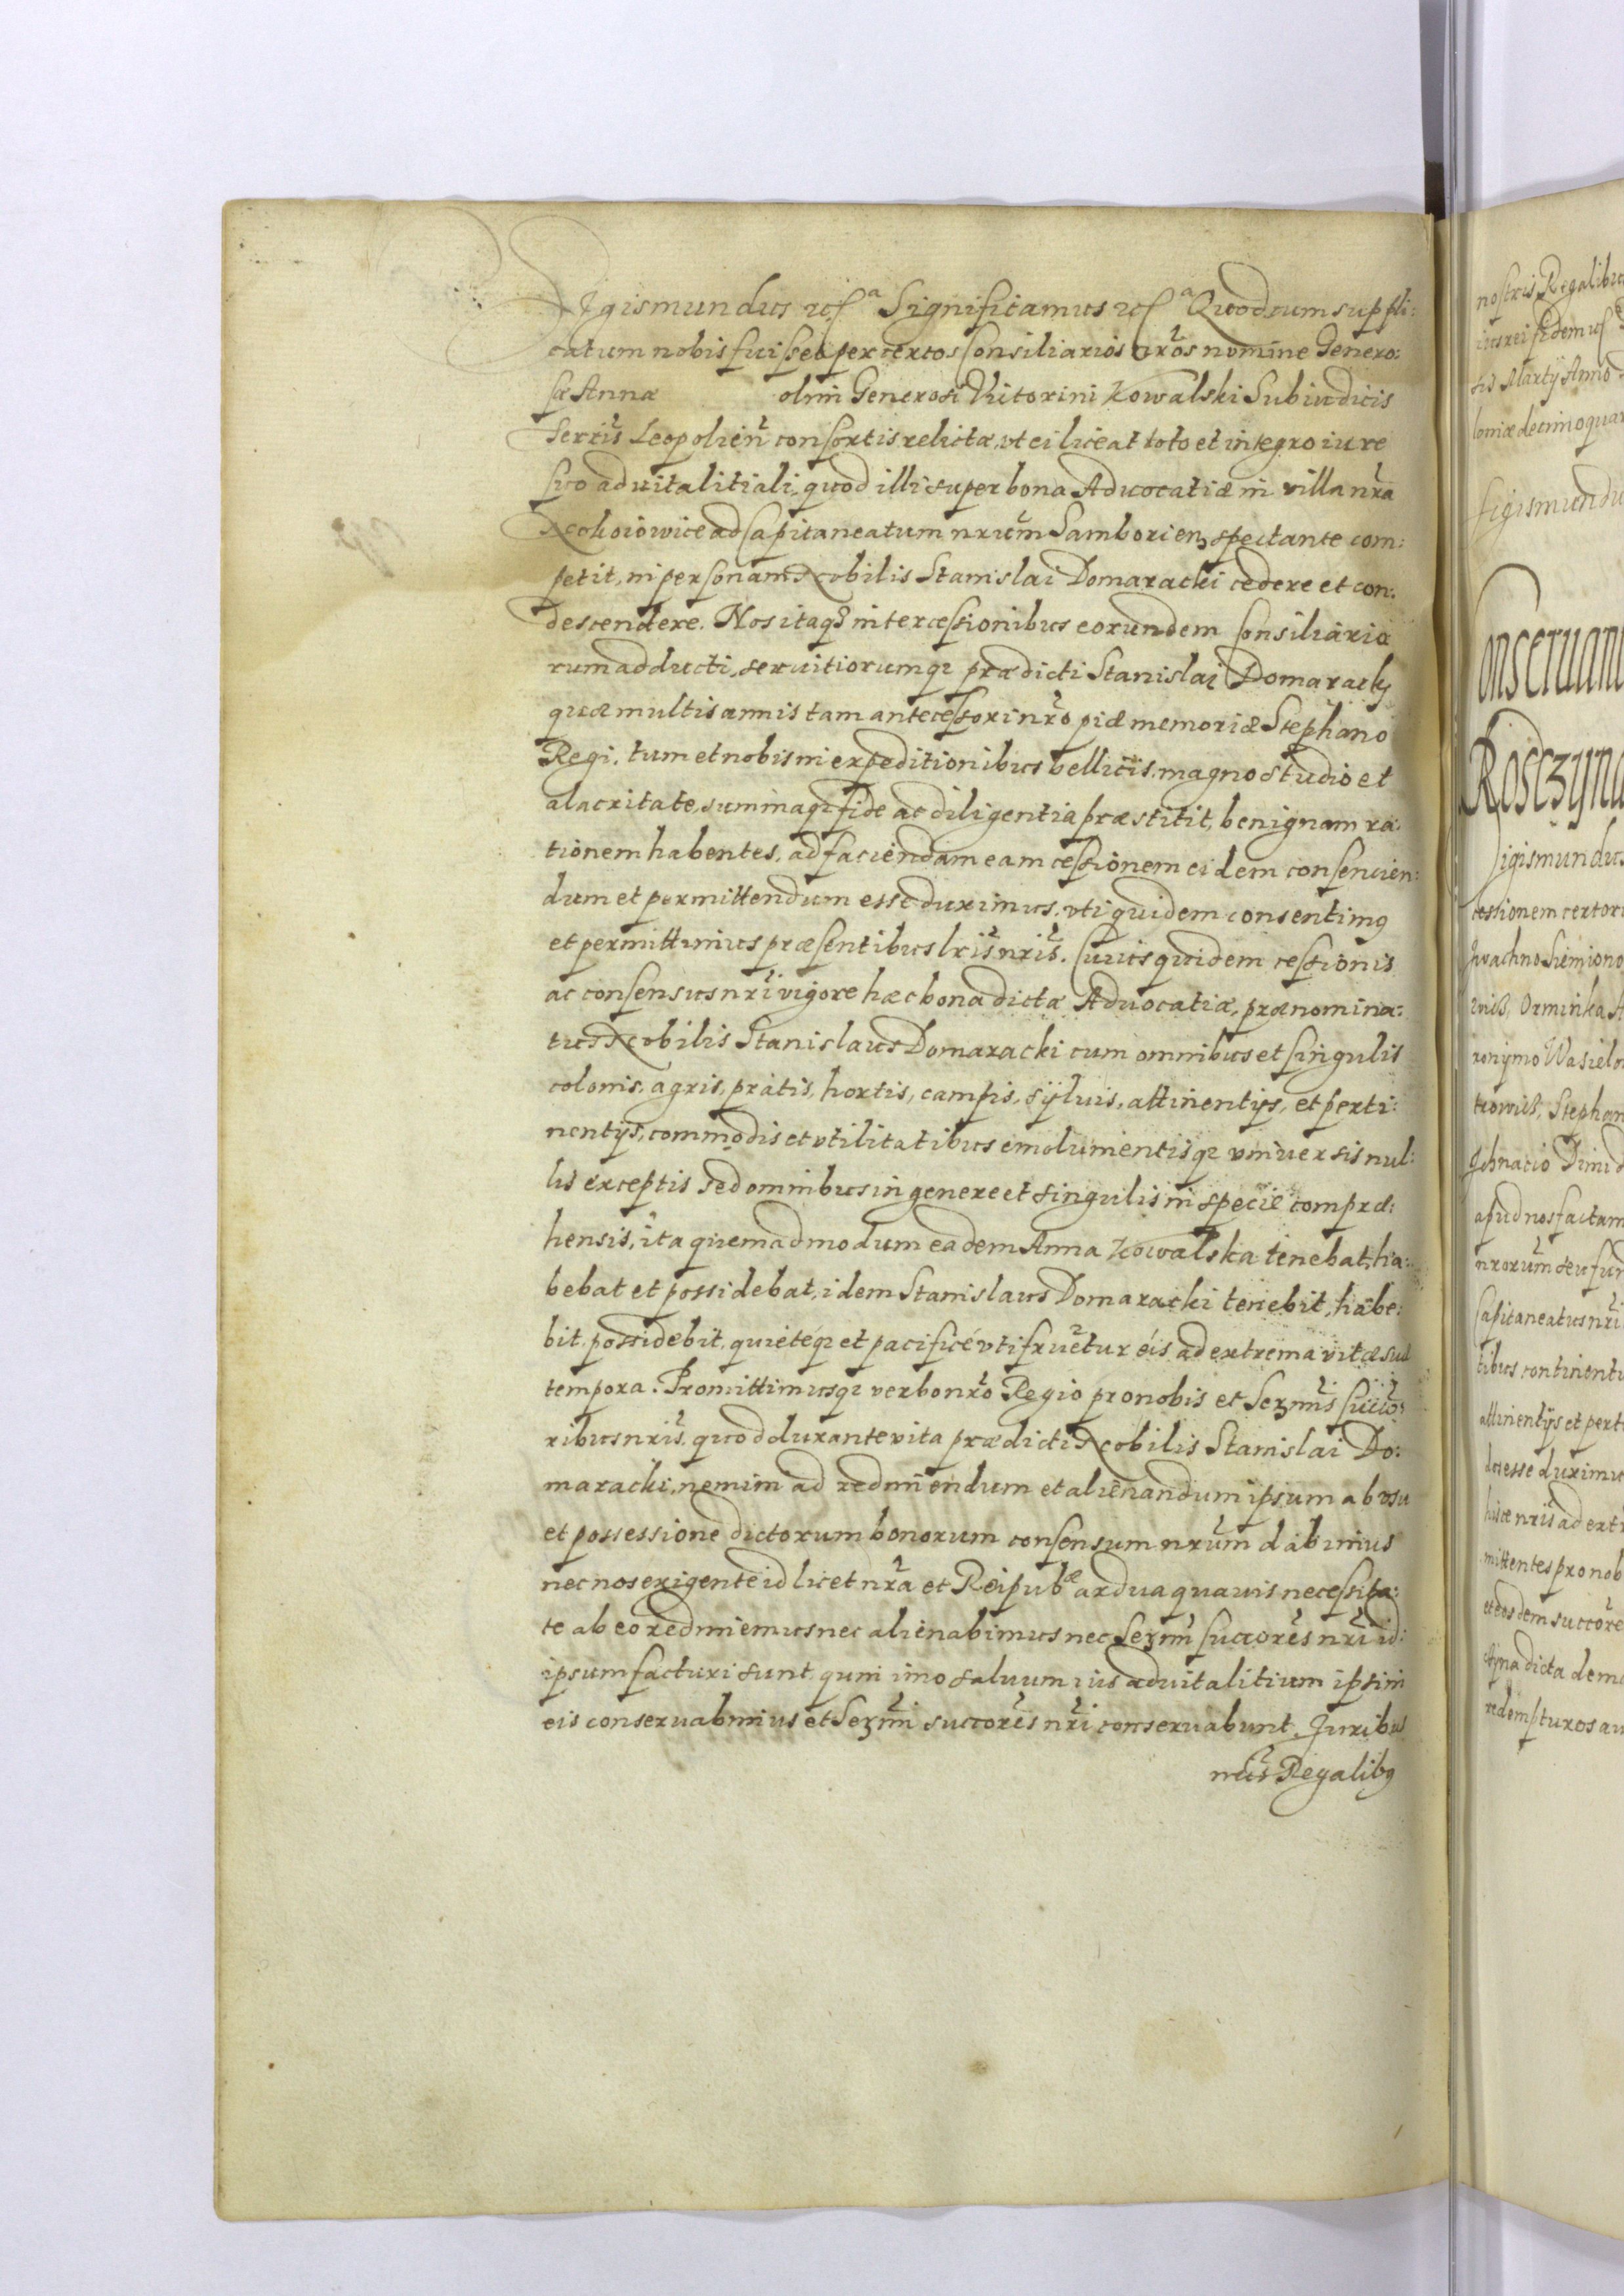 Sigismundus etc̃ᵃ Significamus etc̃ᵃ Quod cum suppli:
catum nobis fuisset per certos Consiliarios nr̃os nomine Genero:
sæ Annæ olim Generosi Victorini Kowalski Subiudicis
Terris̃ Leopolien̄ consortis relictæ, vt ei liceat toto et integro iure
suo aduitalitiali, quod illi super bona Aduocatiæ in villa nr̃a
ad Capitaneatum nrũm Samborien̄ spectante com:
petit, in personam Nobilis Stanislai Domaracki cedere et con:
descendere. Nos itaq3 intercessionibus eorundem Consiliario
rum adducti, seruitiorumq3 prædicti Stanislai Domaracky
quæ multis annis tam antecessori nr̃o piæ memoriæ Stephano
Regi, tum et nobis in expeditionibus bellicis, magno studio et
alacritate, summaq3 fide ac diligentia præstitit, benignam ra:
tionem habentes, ad faciendam eam cessionem eidem consencien:
dum et permittendum esse duximus, vti quidem consentimq
et permittimus præsentibus lris̃ nris̃. Cuius quidem cessionis
ac consensus nrĩ vigore hæc bona dictæ Aduocatiæ, prænomina:
tus Nobilis Stanislaus Domaracki cum omnibus et singulis
colonis, agris, pratis, hortis, campis, syluis, attinentijs, et perti:
nentijs, commodis et vtilitatibus emolumentisq3 vniuersis nul:
lis exceptis sed omnibus in genere et singulis in specie compræ:
hensis, ita quemadmodum eadem Anna Kowalska tenebat, ha:
bebat et possidebat, idem Stanislaus Domaracki tenebit, habe:
bit, possidebit, quietéq3 et pacificé vtifruetur éis ad extrema vitæ suæ
tempora. Promittimusq3 verbo nr̃o Regio pro nobis et Serm̃is Succo:
ribus nris̃, quod durante vita prædicti Nobilis Stanislai Do:
maracki, nemini ad redimendum et alienandum ipsum ab vsu
et possessione dictorum bonorum consensum nrũm dabimus
nec nos exigente id licet nr̃a et Reipubᵃᵉ ardua quauis necessita:
te ab eo redimemus nec alienabimus nec Serm̃i succores̃ nrĩ id:
ipsum facturi sunt, quin imo saluum ius aduitalitium ipsi in
eis conseruabimus et Serm̃i succores̃ nrĩ conseruabunt. Juribus
nris̃ Regalibq
nostris Regalibus
Sigismundu
Conseruan
Rosczyna
Sigismundus
cessionem certor
Iwachno Siemiono
ronymo Wasielo
Stephan
Jhnacio
apud nos factam
nrorum̃ seu
Capitaneatus nrĩ
tibus continenti
attinentijs et pert
esse duximu
nris̃ ad extr
mittentes pro nob
et eosdem succore
dicta dem
redempturos au